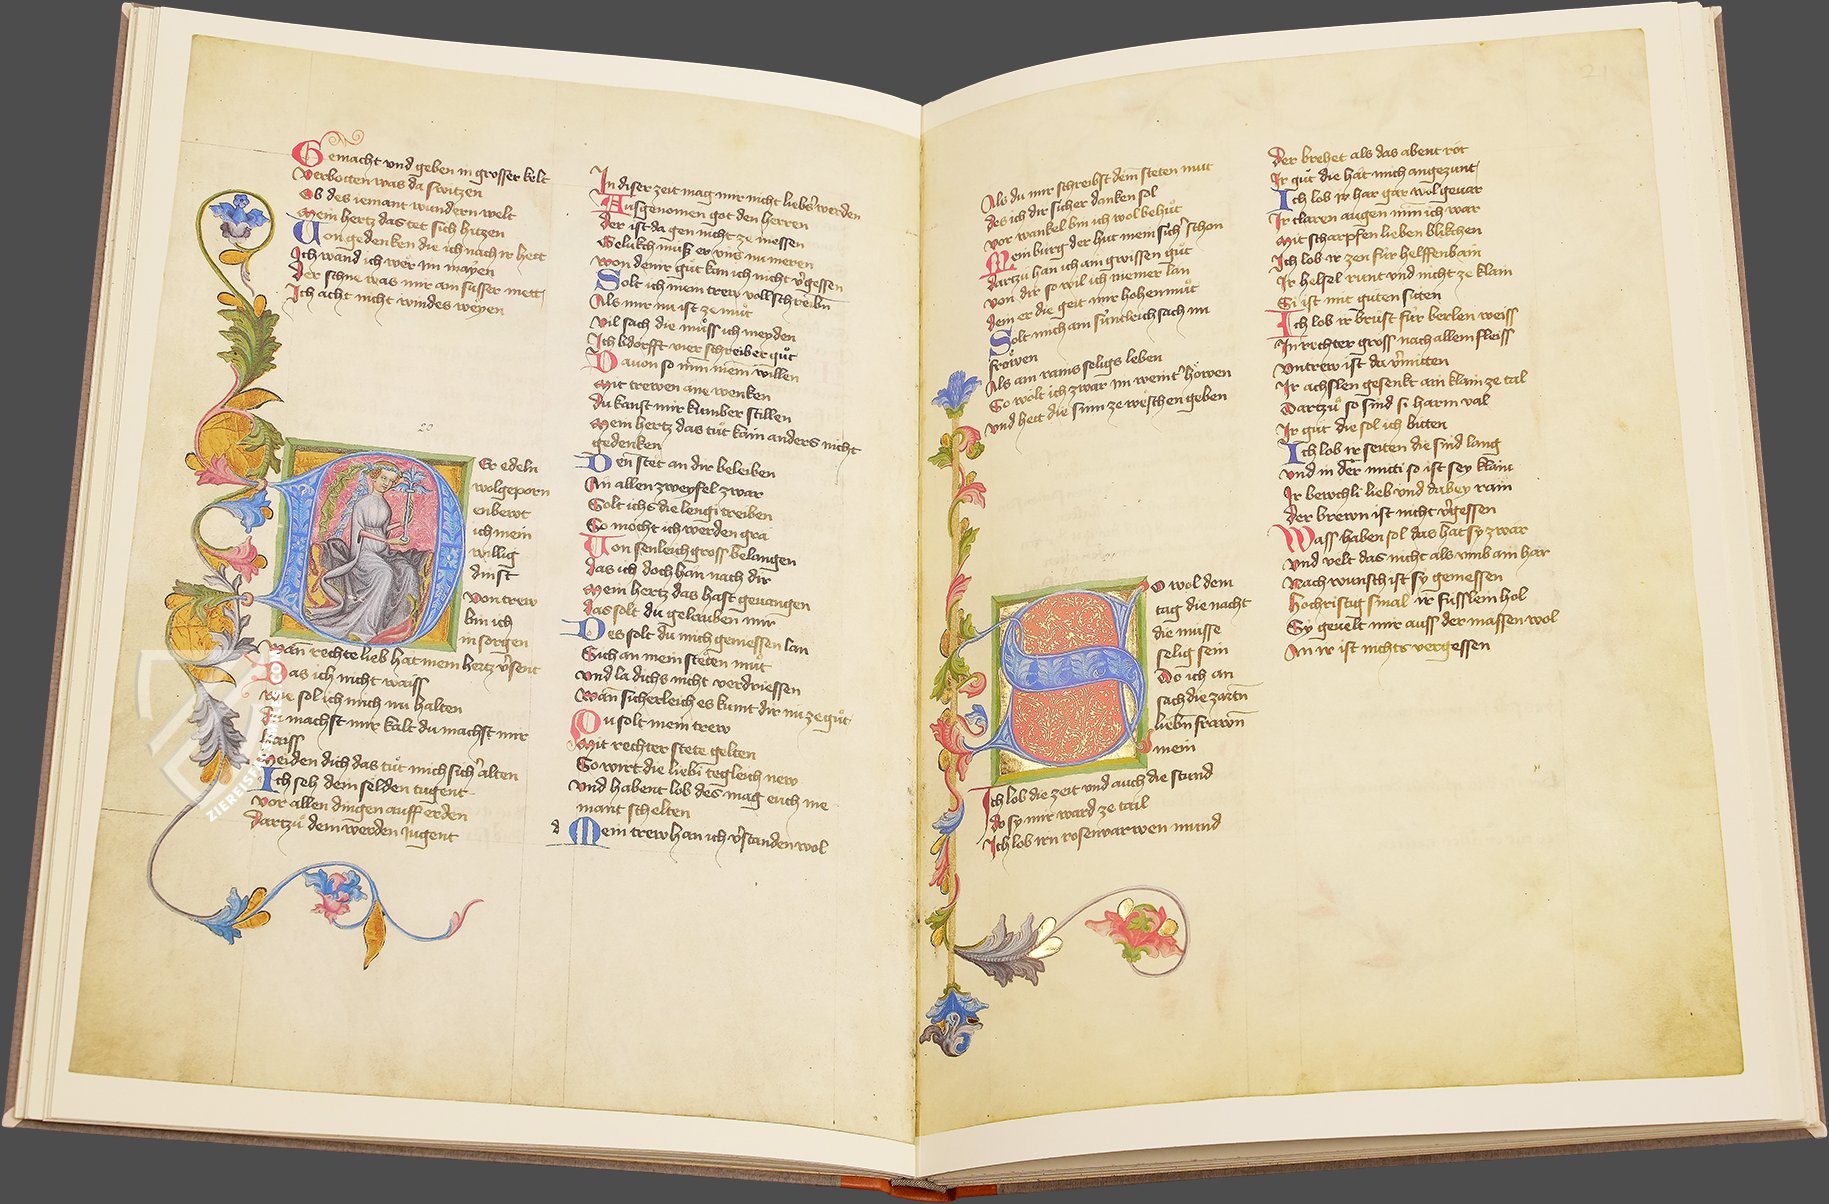 Gemacht vnd geben in grosser kelt
Verbotten was da switzen
Ob des iemant wundern welt
Mein hertz das tet sich hitzen
Von gedenken die ich nach ir hett
Ich wand ich wer im mayen
Der schne was mir am susser mett
Ich acht nicht windes weyen
20
Er edeln
wolgeporn
enbewt
ich mein
willig
dinst
von trew
bin ich
in sorgen
wan rechte lieb hat mein hertz v'seit
Das ich nicht waiss
wie sol ich mich nu halten
du machst mir kalt du machst mir
haiss
meiden dich das tut mich sich' alten
Ich seh dein selden tugent
vor allen dingen auff erden
dartzu dem werden jugent
In diser zeit mag mir nicht liebs' werden
Ausgenomen got den herren
der ist da gen nicht ze messen
Gelukch muss er vns nu meren
von denir gut kan ich nicht v'gessen
Solt ich mein trew vollschreibn
Als mir nu ist ze mut
vil sach die muss ich meyden
Ich bdorfft vier schreiber gut
Dauon so nim mein willen
mit trewen ane wenken
du kanst mir kumber stillen
mein hertz das tut kain anders nicht
gedenken
Den stet an dir beleiben
An allen zweyfel zwar
Solt ichs die lengi treiben
So mocht ich werden gra
Von senleich gross belangen
das ich doch han nach dir
mein hertz das hast geuangen
das solt du gelauben mir
Des solt du mich geniessen lan
Sich an mein steten mut
vnd la dichs nicht verdriessen
wan sicherleich es kumt dir nu ze gut
Du solt mein trew
mit rechter stete gelten
So wirt die liebi tegleich new
vnd habent lob des mag euch nie
mant schelten
d Mein trew han ich v'standen wol
21
Als du mir schreibst dem steten mut
des ich dir sicher danken sol
vor wankel bin ich wol behut
Mein burg der hut mein sich' schon
dartzu han ich ain gwissen gut
von dir so wil ich niemer lan
dem er die geit mir hohen mut
Solt mich ain suntleich sach im
frowen
Als am rains seligs leben
So wolt ich zwar im weint' howen
vnd hett die sinn ze weschen geben
O wol dem
tag die nacht
die musse
selig sein
do ich an
sach die zartn
liebn frawn
mein
Ich lob die zeit vnd auch die stund
do sy mir ward ze tail
Ich lob irn rosenvarwen mund
der brehet als das abent rot
Ir gut die hat mich angezunt
Ich lob ir har gar wol gevar
Ir claren augen nim ich war
mit scharpfen lieben blikchen
Ich lob ir zen fur helffenbain
Ir helsel runt vnd nicht ze klain
Si ist mit guten siten
Ich lob ir brust fur berlen weiss
In rechter gross nach allem fleiss
vntrew ist da v'miten
Ir achslen gesenkt ain klain ze tal
Dartzu so sind si harm val
Ir gut die sol ich biten
Ich lob ir seiten die sind lang
vnd in der miti so ist sey klain
Ir bewchli lieb vnd dabey rain
der brewn ist nicht v'gessen
Wass haben sol das hat sy zwar
vnd velt das nicht als vmb ain har
nach wunsch ist sy gemessen
hochristig smal ir fusslein hol
Sy gevelt mir auss der massen wol
An ir ist nichts vergessen
ZIEREIS FAKSIMILES.COM